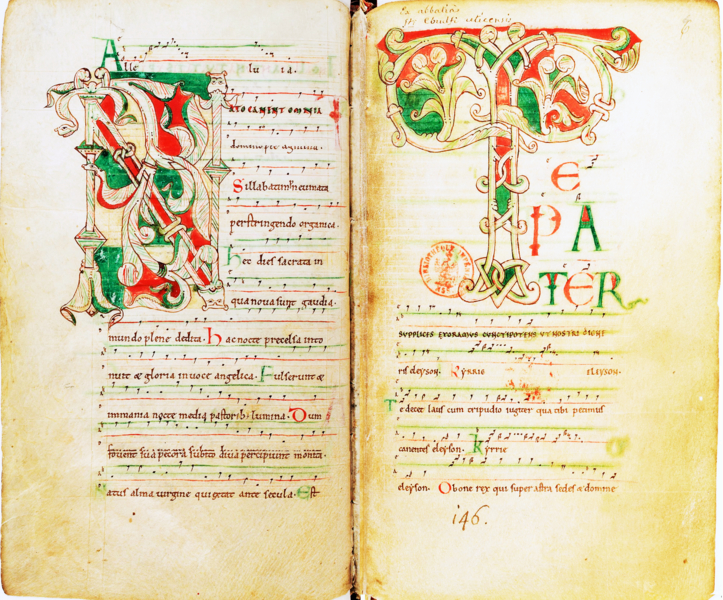 Alle lu ia.
NATO CANENT OMNIA
domino pie agmina.
Sillabatim neumata
perstringendo organica.
Hec dies sacrata in
qua nova sunt gaudia.
mundo plene dedita. Hac nocte precelsa into
nuit æ gloria in voce angelica. Fulserunt æ
inmania nocte media pastorib; lumina. Dum
fovent sua pecora subito diva percipiunt monita.
Natus alma virgine qui extat ante secula. Est
Ex abbatia
Sti Ebrulfi uticensis
T
E
PA
TER
SUPPLICES EXORAMUS CUNCTIPOTENS UT NOSTRI DIGNE
ris eleyson. Kyrrie eleyson.
Te decet laus cum tripudio iugiter qua tibi petimus
canentes eleyson. Kyrrie
eleyson. O bone rex qui super astra sedes æ domine
146.